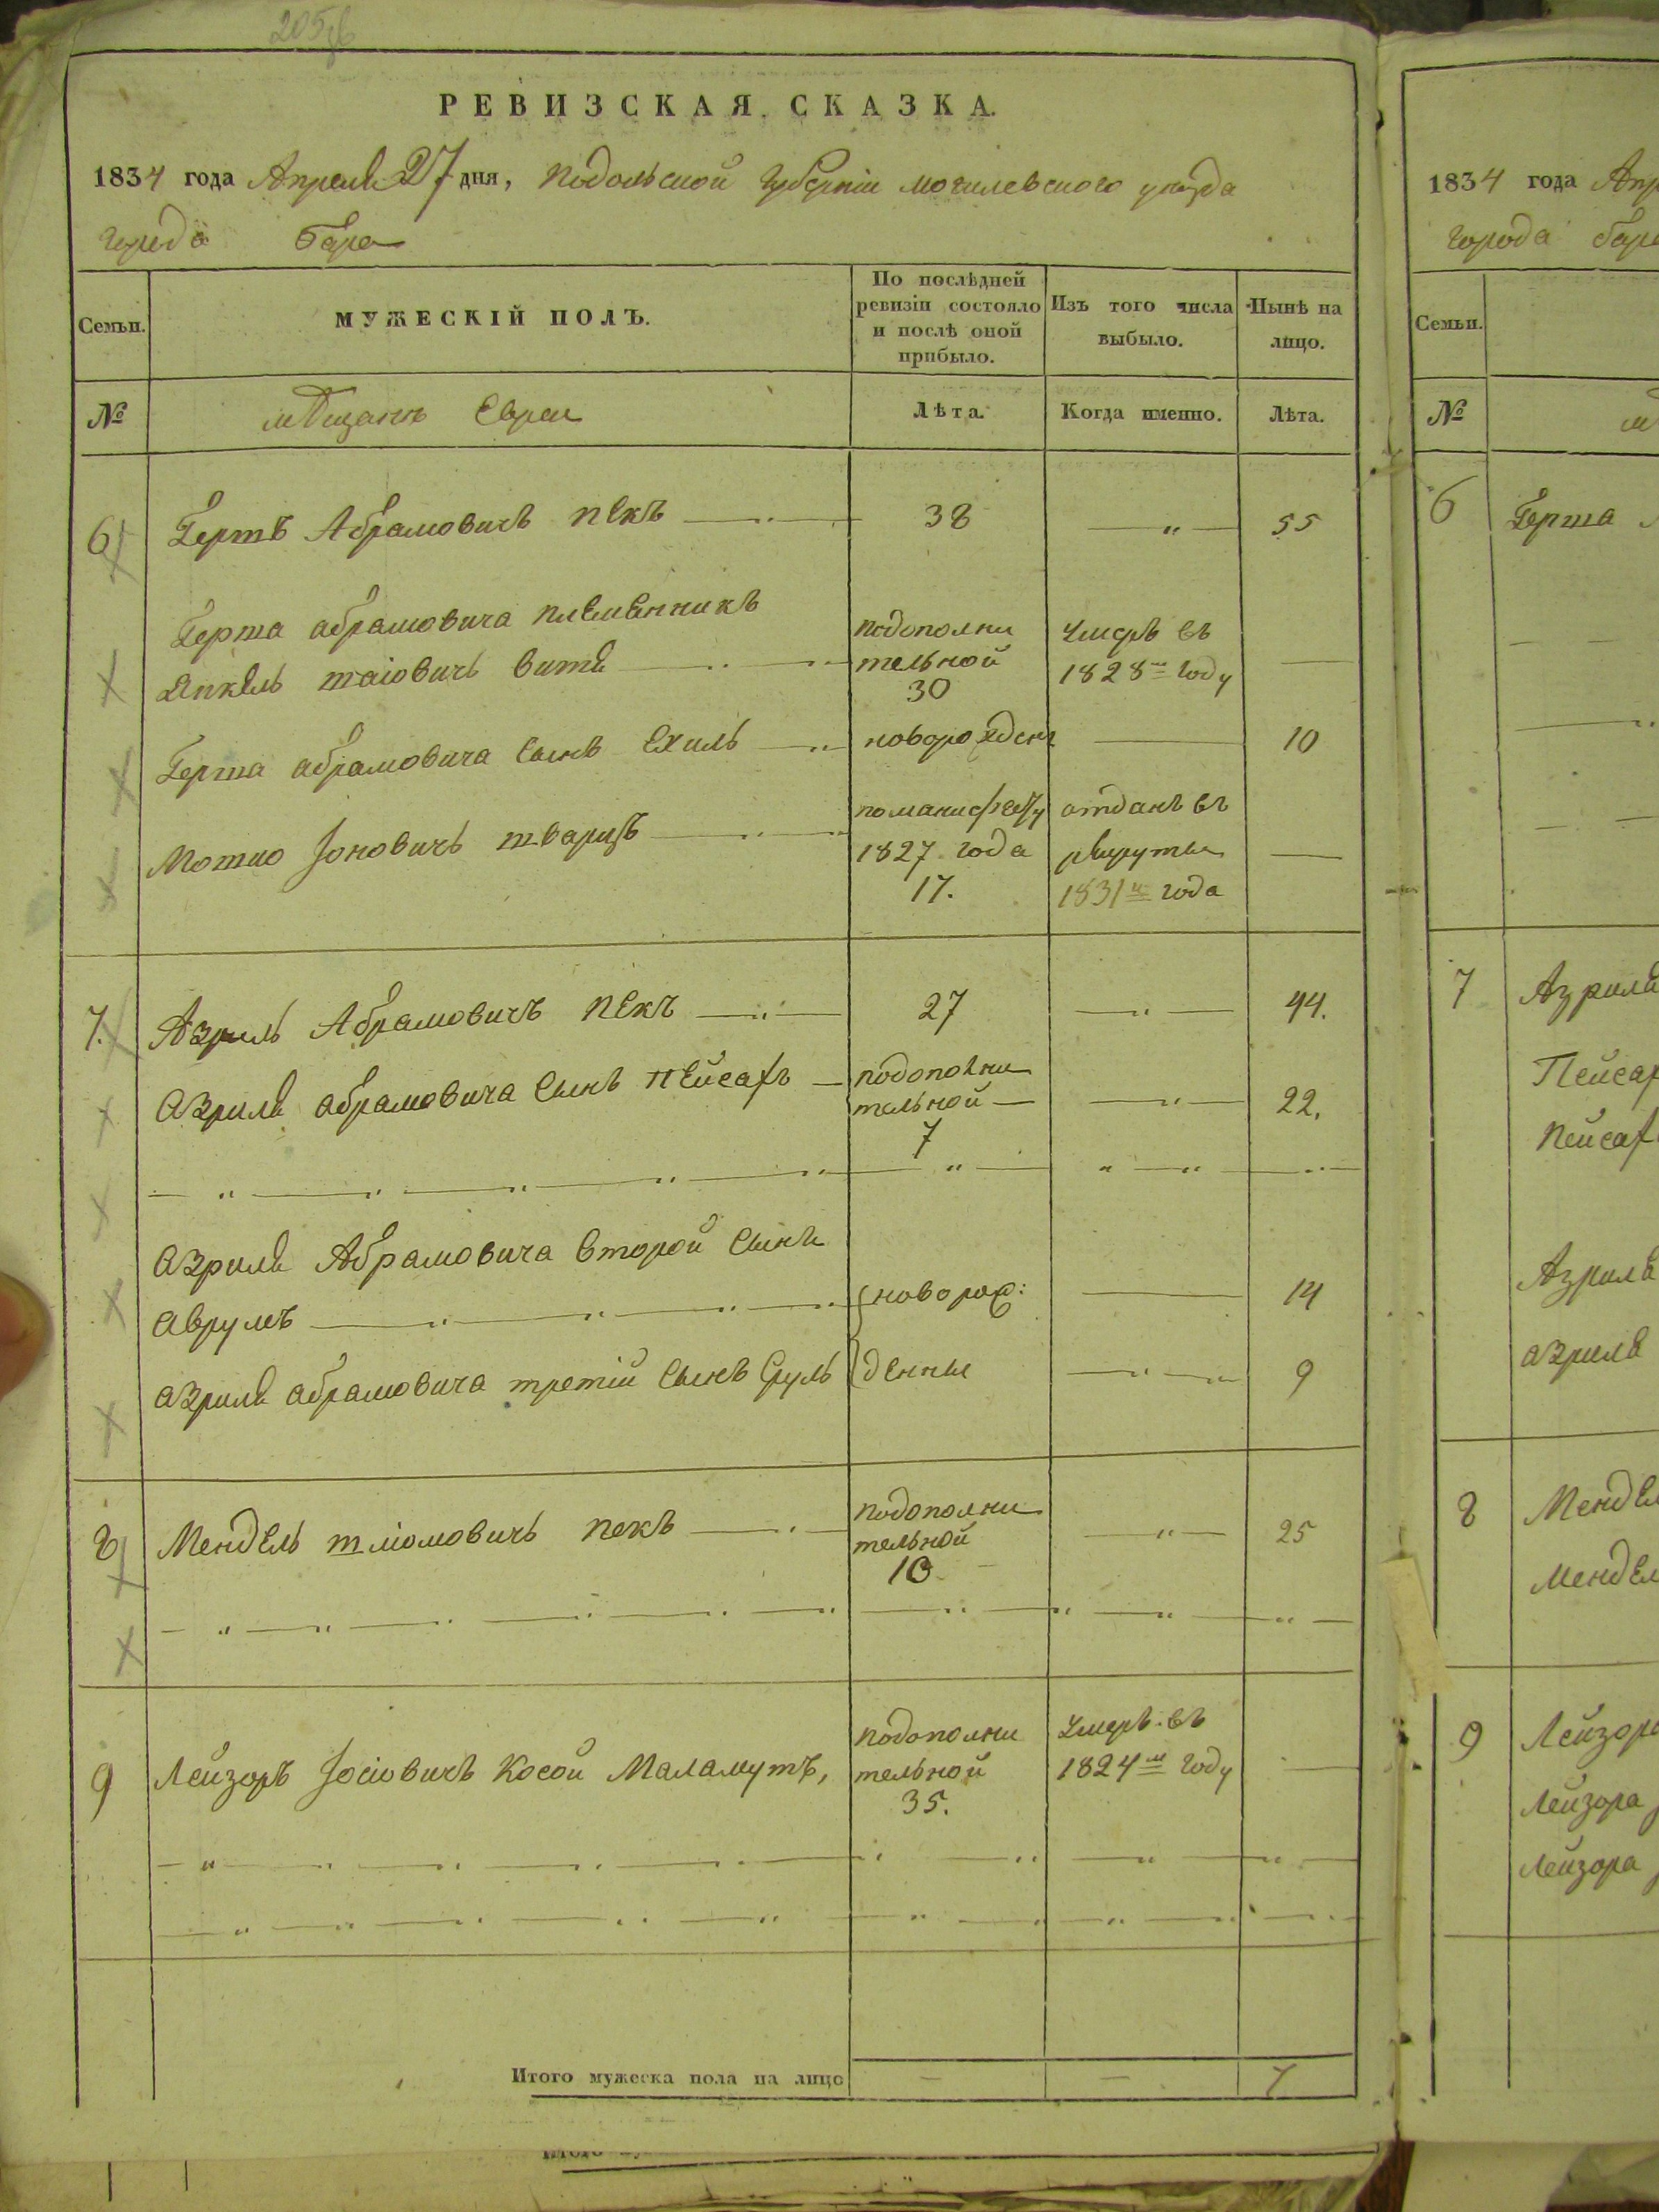 205
РЕВИЗСКАЯ СКАЗКА.
1834 года Апреля 27 дня, Подольской Губерніи могилевского уезда
города Бара
Семьи.
МУЖЕСКІЙ ПОЛЪ.
По послѣдней
ревизіи состояло
и послѣ оной
прибыло.
Изъ того числа
выбыло.
Нынѣ на
лицо.
№
мѣщанъ Евреи
Лѣта.
Когда именно.
Лѣта.
6 Гертъ Абрамовичъ пекъ 38 55
Герта абрамовича племенникъ
Янкель таіовичъ
подополни
тельной
30
Умеръ въ
1828м году
Герта абрамовича сынъ Ехиль новорожден 10
Мотио Іоновичъ
поманифесту
1827 года
17.
отданъ въ
рекруты
1831м года
7. Азриль Абрамовичъ пекъ 27 44.
Азриля абрамовича сынъ пейсахъ
подополни
тельной
7
22.
Азриля Абрамовича второй сынъ
Аврумъ новорож: 14
Азриля абрамовича третій сынъ Сруль денные 9
8 Мендель тліомовичъ пекъ
подополни
тельной
10
25
9 Лейзоръ Іосіовичъ Косой Маламутъ,
подополни
тельной
35.
Умеръ въ
1824м году
Итого мужеска пола на лицо 7
1834 года Апр
города бара
Семьи.
№
6 Герта
7 Азриля
Пейсах
пейсах
Азриля
азриля
8 Мендел
Мендел
9 Лейзора
Лейзора
Лейзора